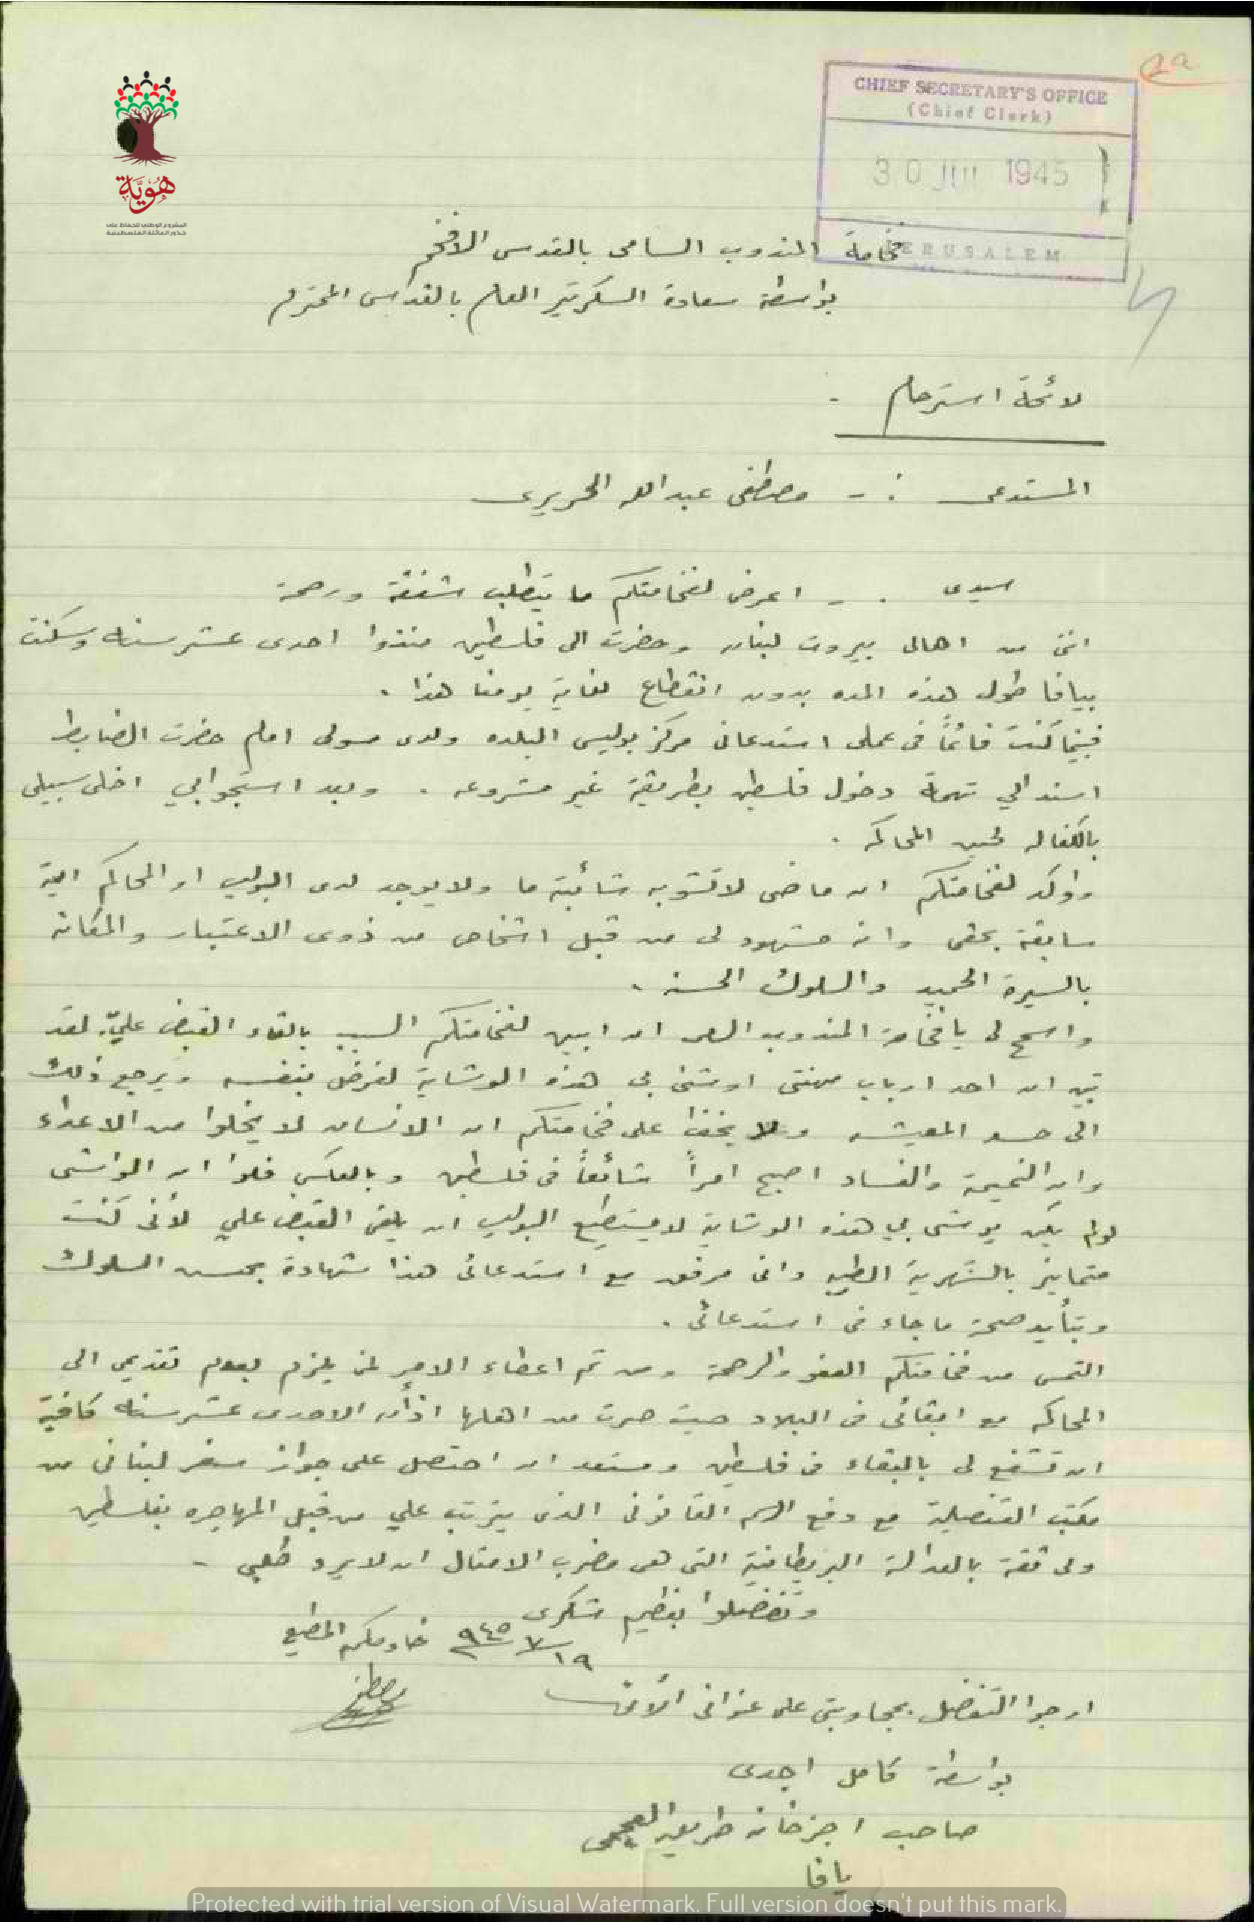 هوية
المشروع الوطني للحفاظ على
جذور العائلة الفلسطينية
CHIEF SECRETARY'S OFFICE
(Chief Clerk)
30 JUL 1945
JERUSALEM
فخامة المندوب السامي بالقدس الافخم
بواسطة سعادة السكرتير العام بالقدس المحترم
لائحة استرحام .
المستدعى :- مصطفى عبد الله الحريرى
سيدى .- اعرض لفخامتكم ما يتطلب شفقة ورحمة
اننى من اهالى بيروت لبنان وحضرت الى فلسطين منذوا احدى عشر سنه وسكنت
بيافا طول هذه المده بدون انقطاع لغاية يومنا هذا .
فبينما كنت قائماً فى عملى استدعانى مركز بوليس البلده ولدى مثولى امام حضرت الضابط
اسند الي تهمة دخول فلسطين بطريقة غير مشروعه . وبعد استجوابي اخلى سبيلى
بالكفاله لحين المحاكمه .
واؤكد لفخامتكم ان ماضى لا تشوبه شائبة ما ولا يوجد لدى البوليس او المحاكم اية
سابقة بحقى وانه مشهود لى من قبل اشخاص من ذوى الاعتبار والمكانه
بالسيرة الحميده والسلوك الحسنه .
واسمح لى يا فخامة المندوب السامى ان ابين لفخامتكم السبب بالقاء القبض عليّ. لقد
تبين ان احد ارباب مهنتى اوشى بى هذه الوشاية لغرض بنفسه ويرجع ذلك
الى حسد المعيشه ولا يخفا على فخامتكم ان الانسان لا يخلوا من الاعداء
وان النميمة والفساد اصبح امراً شائعاً فى فلسطين وبالعكس فلوا ان الواشى
لولم يكن يوشى بي هذه الوشاية لا يستطيع البوليس ان يلقى القبض علي لأنى كنت
متمايز بالشهرية الطيبه وانى مرفق مع استدعائى هذا شهادة بحسن السلوك
وبتأيد صحة ما جاء فى استدعائى .
التمس من فخامتكم العفو والرحمة ومن ثم اعطاء الامر لمن يلزم بعدم تقديمى الى
المحاكمه مع ابقائى فى البلاد حيث صرت من اهلها اذ أن الاحدى عشر سنه كافية
ان تشفع لى بالبقاء فى فلسطين ومستعد ان احتصل على جواز سفر لبنانى من
مكتب القنصلية مع دفع الرسم القانونى الذى يترتب علي من قبل المهاجره بفلسطين
ولى ثقة بالعدالة البريطانية التى هى مضرب الامثال ان لا يرد طلبى -
وتفضلوا بعظيم شكرى
١٩/٧/٩٤٥ خادمكم المطيع
مصطفى
ارجوا التفضل بمجاوبتى على عنوانى الأتى
بواسطة كامل اجدى
صاحب اجزخانه طريق العجمى
يافا
Protected with trial version of Visual Watermark. Full version doesn't put this mark.